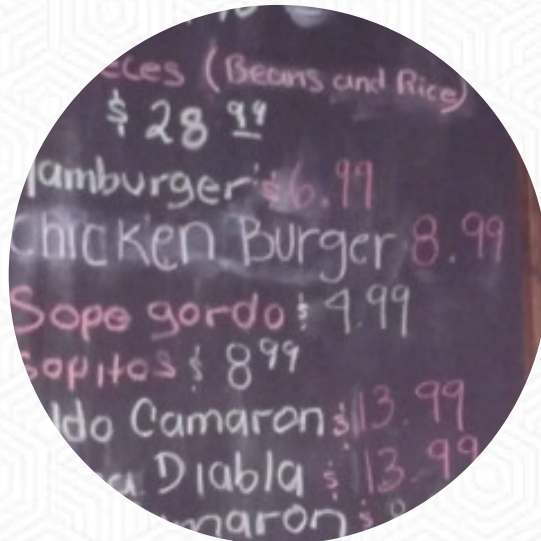 eces (Beans and Rice)
$ 28 99
Hamburger $6.99
Chicken Burger 8.99
Sope gordo $ 4.99
Sopitos $ 8 99
ldo Camaron $13.99
a Diabla $ 13.99
maron $